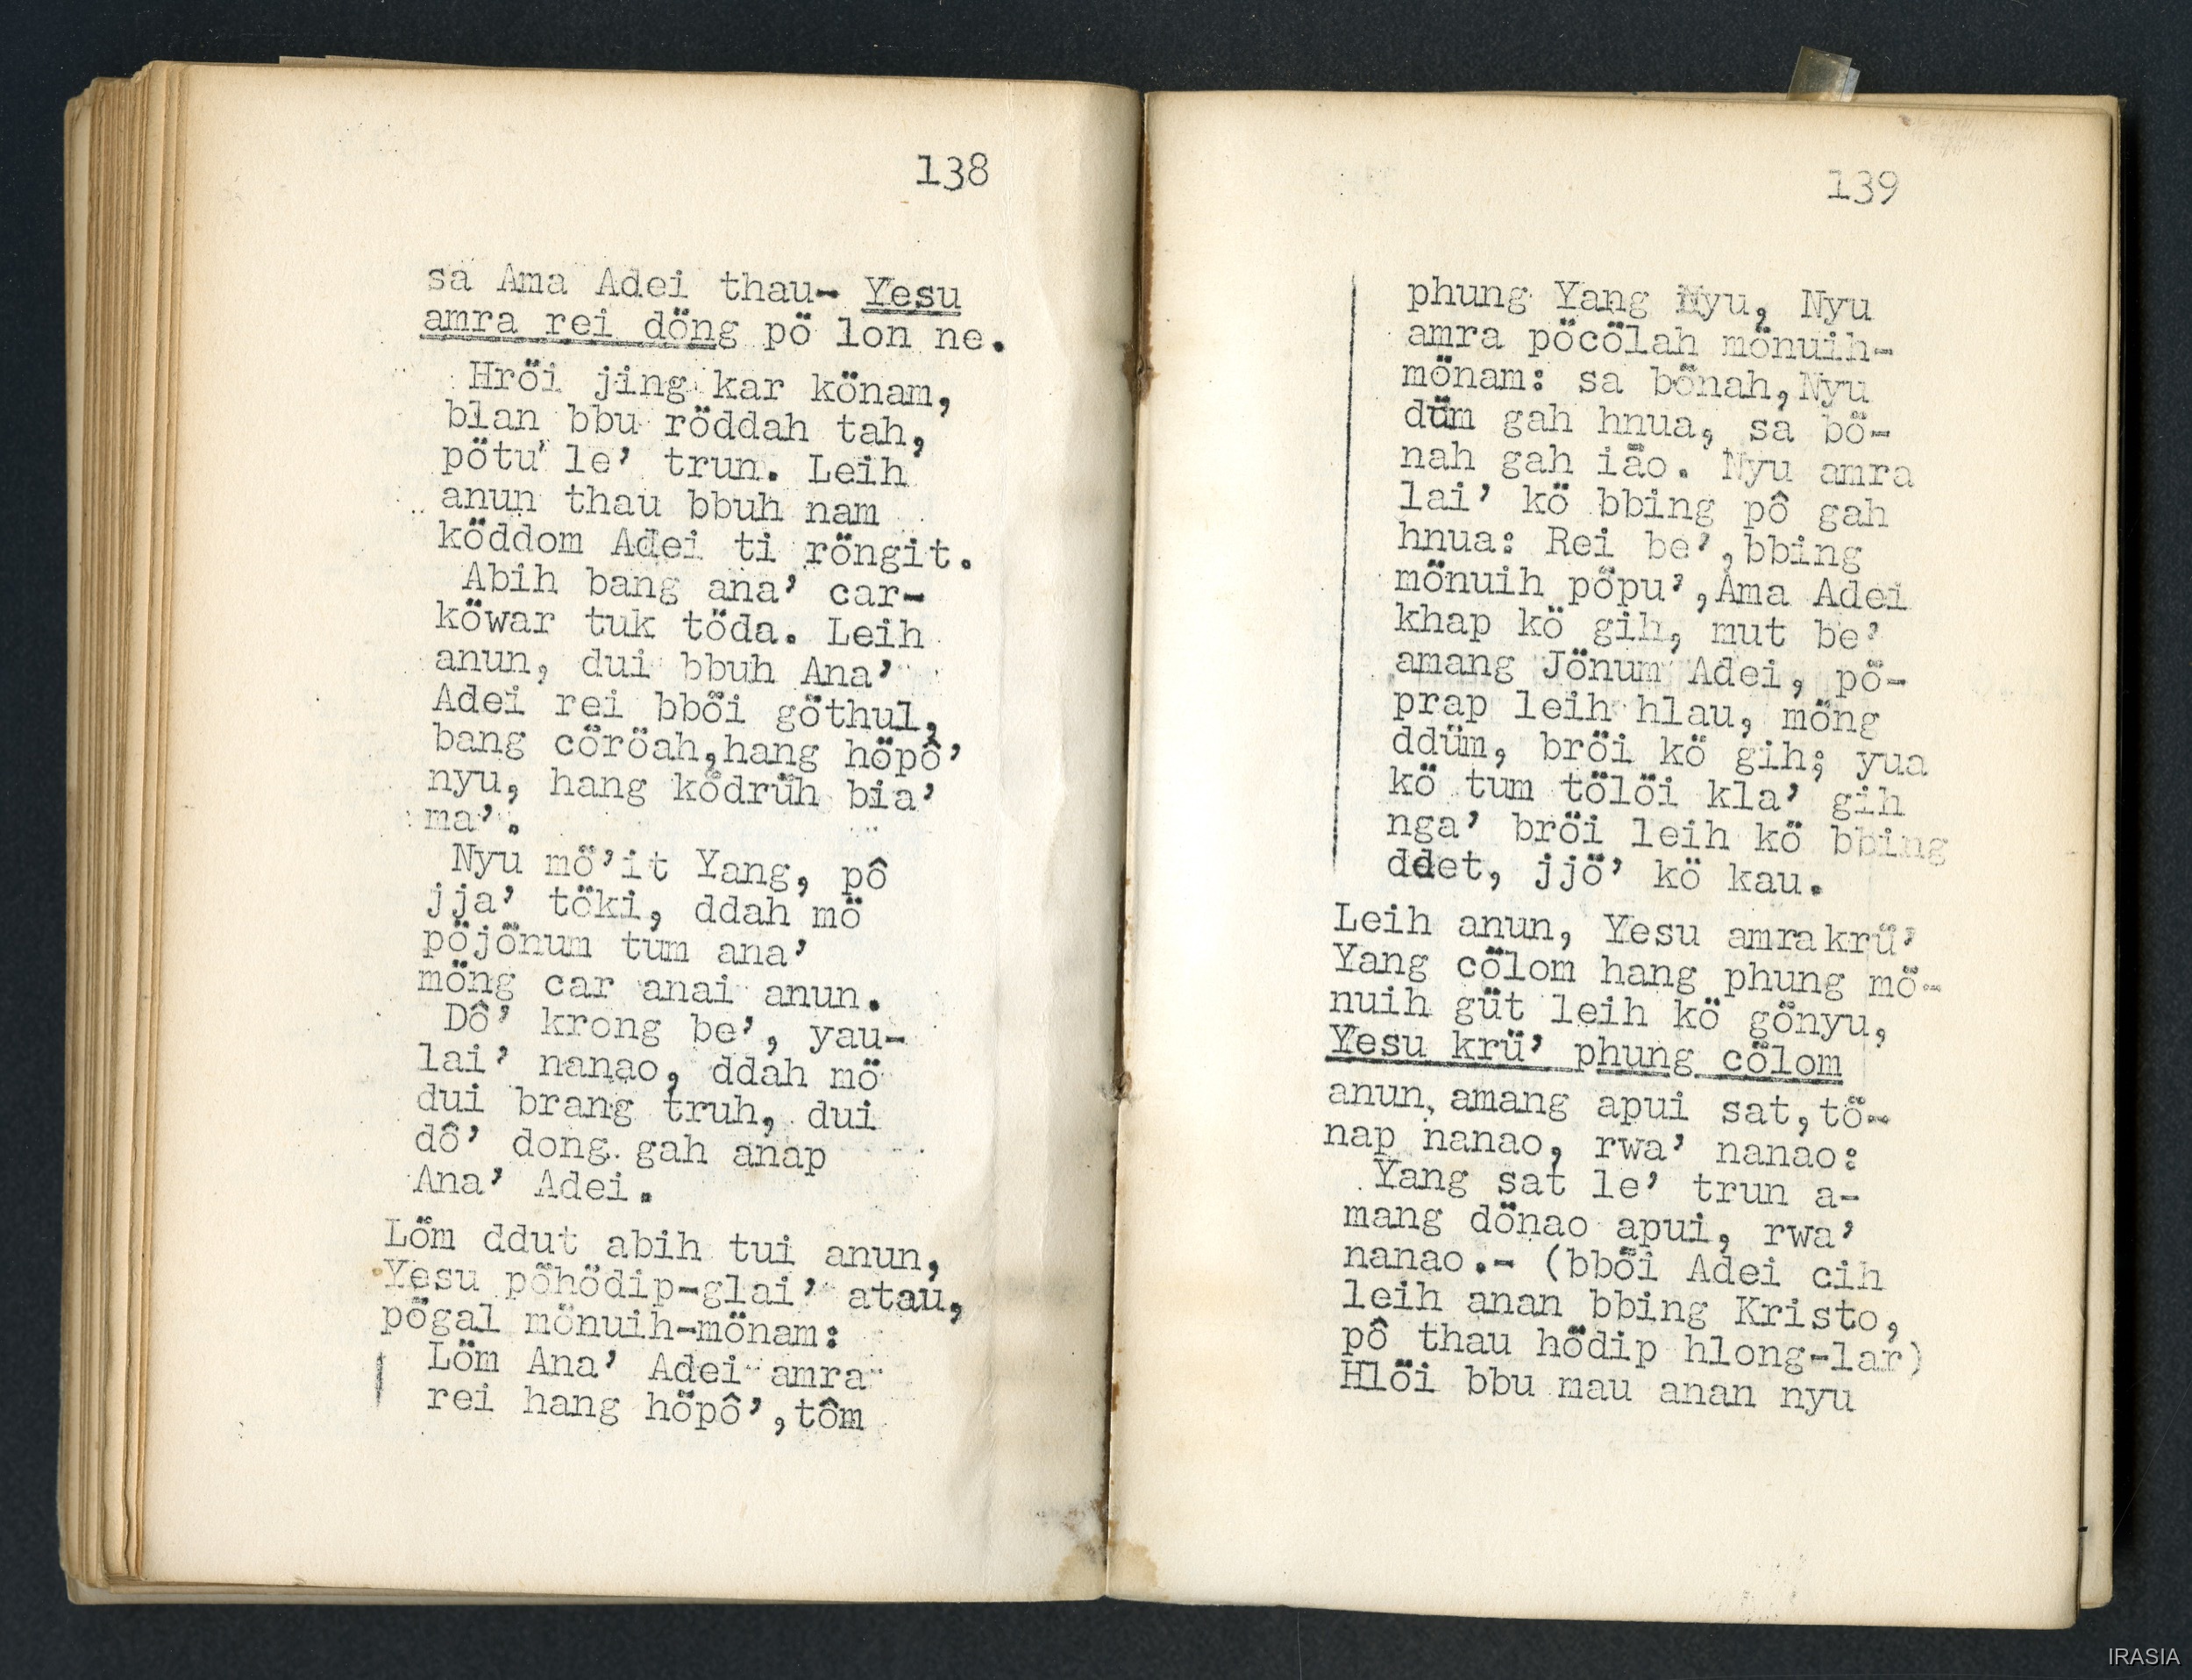 138
sa Ama Adei thau- Yesu
amra rei döng pö lon ne.
Hröi jing kar könam,
blan bbu röddah tah,
pötu' le' trun. Leih
anun thau bbuh nam
köddom Adei ti röngit.
Abih bang ana' car-
köwar tuk töda. Leih
anun, dui bbuh Ana'
Adei rei bböi göthul,
bang cöröah,hang höpô'
nyu, hang ködrüh bia'
ma'.
Nyu mö'it Yang, pô
jja' töki, ddah mö
pöjönum tum ana'
möng car anai anun.
Dô' krong be', yau-
lai' nanao, ddah mö
dui brang truh, dui
dô' dong gah anap
Ana' Adei.
Löm ddut abih tui anun,
Yesu pöhödip-glai' atau,
pögal mönuih-mönam:
Löm Ana' Adei amra
rei hang höpô',tôm
139
phung Yang Nyu, Nyu
amra pöcölah mönuih-
mönam: sa bönah,Nyu
düm gah hnua, sa bö-
nah gah iäo. Nyu amra
lai' kö bbing pô gah
hnua: Rei be',bbing
mönuih pöpu',Ama Adei
khap kö gih, mut be'
amang Jönum Adei, pö-
prap leih hlau, möng
ddüm, bröi kö gih; yua
kö tum tölöi kla' gih
nga' bröi leih kö bbing
ddet, jjö' kö kau.
Leih anun, Yesu amra krü'
Yang cölom hang phung mö-
nuih güt leih kö gönyu,
Yesu krü' phung cölom
anun, amang apui sat,tö-
nap nanao, rwa' nanao:
Yang sat le' trun a-
mang dönao apui, rwa'
nanao.- (bböi Adei cih
leih anan bbing Kristo,
pô thau hödip hlong-lar)
Hlöi bbu mau anan nyu
IRASIA